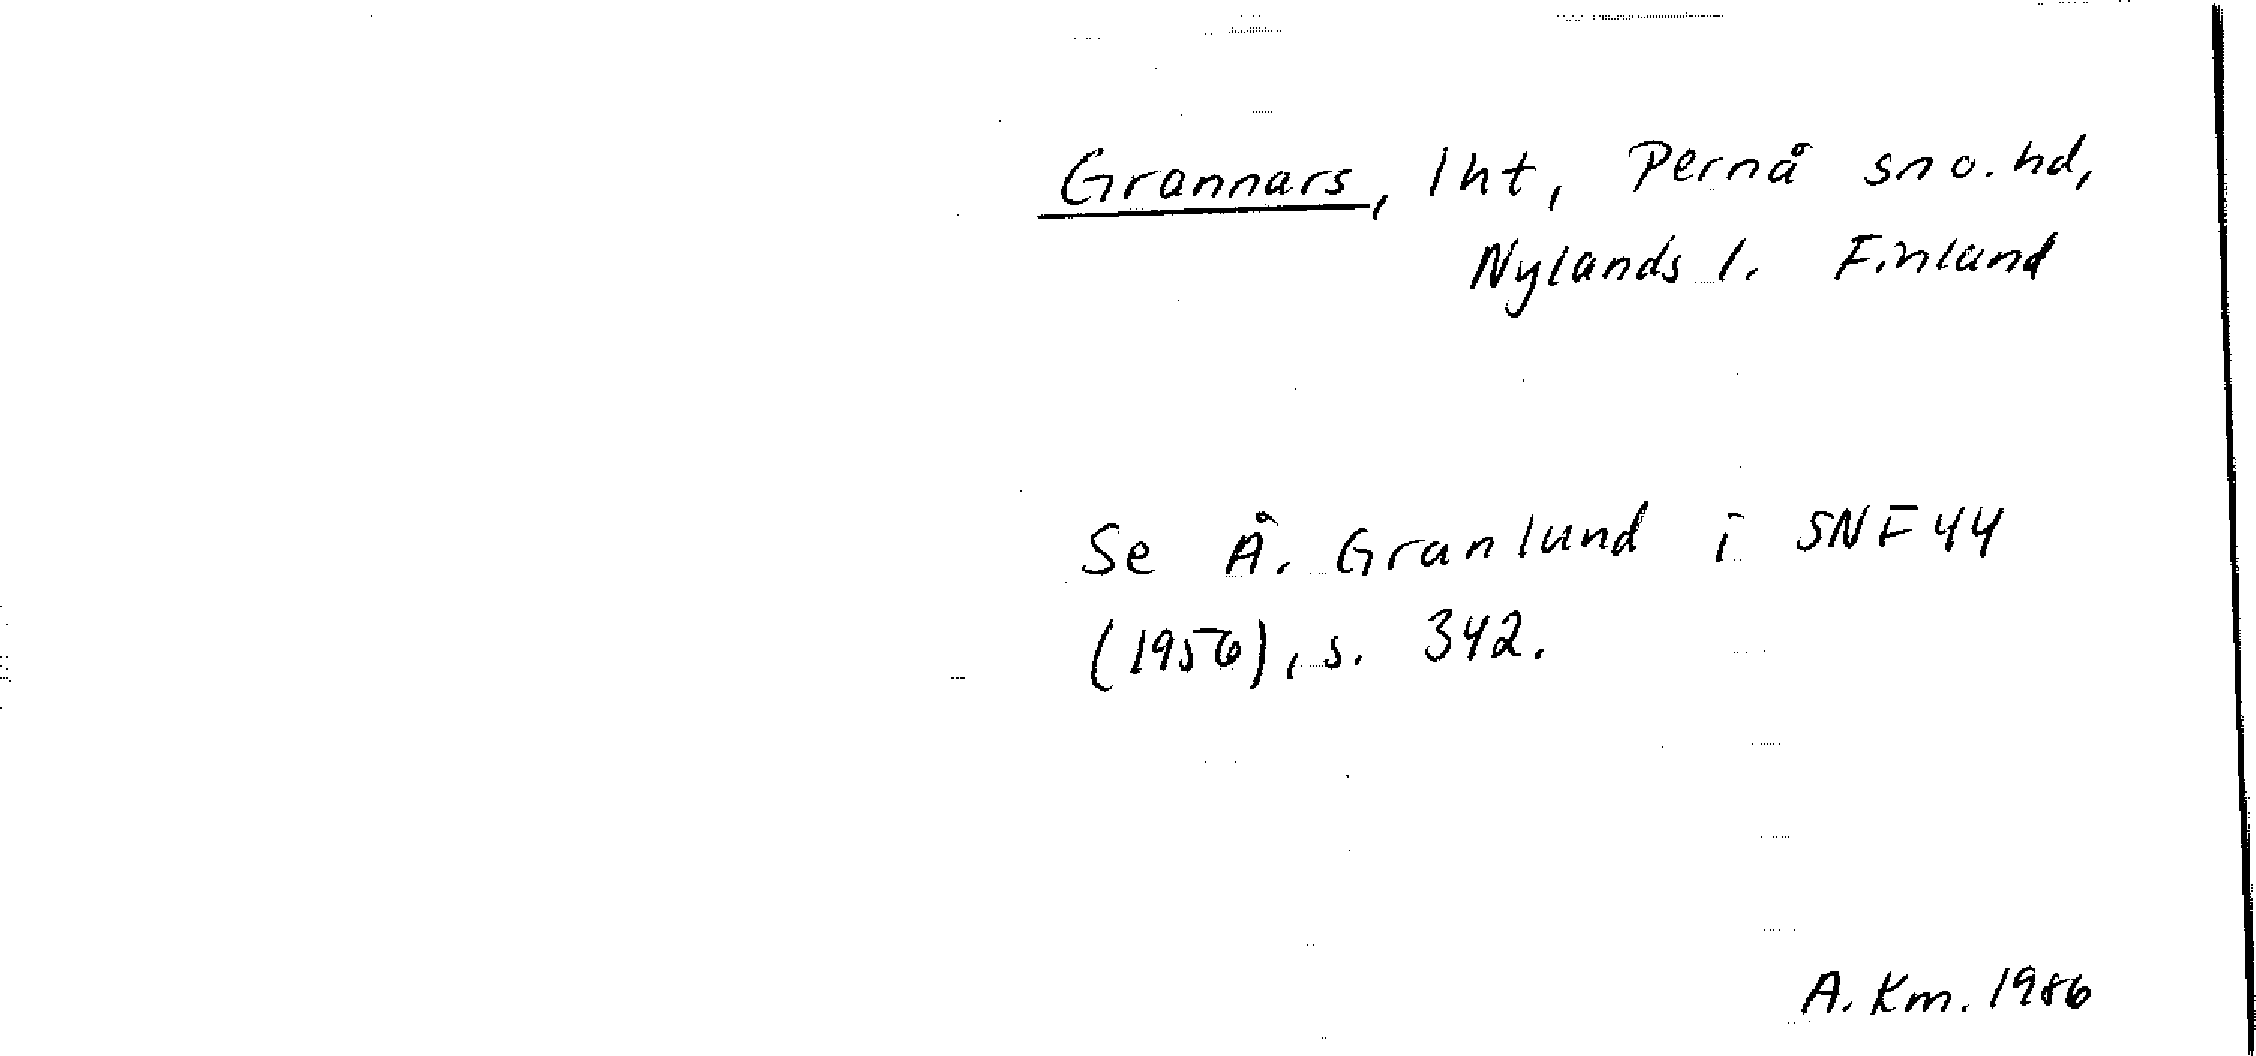 Grannars, lht, Pernå sn o. hd,
Nylands l. Finland
Se Å. Granlund i SNF 44
(1956), s. 342.
A. Km. 1986